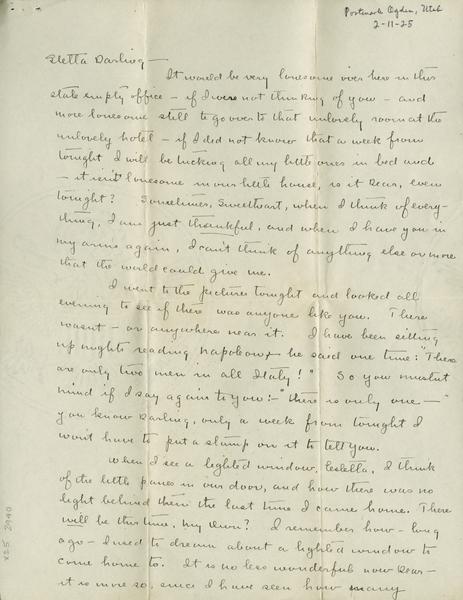 Postmark Ogden, Utah
2-11-25
Stetta Darling —
It would be very lonesome over here in this
stale empty office — if I were not thinking of you — and
more lonesome still to go over to that unlovely room at the
unlovely hotel — if I did not know that a week from
tonight I will be tucking all my little ones in bed and
— it isn't lonesome in our little house, is it dear, even
tonight? Sometimes, Sweetheart, when I think of every-
thing, I am just thankful, and when I have you in
my arms again, I can't think of anything else or more
that the world could give me.
I went to the pictures tonight and looked all
evening to see if there was anyone like you. There
wasn't — or anywhere near it. I have been sitting
up nights reading Napoleon & he said one time: "There
are only two men in all Italy!" So you mustn't
mind if I say again to you:— "there is only one —"
you know Darling, only a week from tonight I
won't have to put a stamp on it to tell you.
When I see a lighted window, I think
of the little panes in our door, and how there was no
light behind them the last time I came home. There
will be this time, my own? I remember how — long
ago — I used to dream about a lighted window to
come home to. It is no less wonderful now dear —
it is more so, since I have seen how many
x25 2940